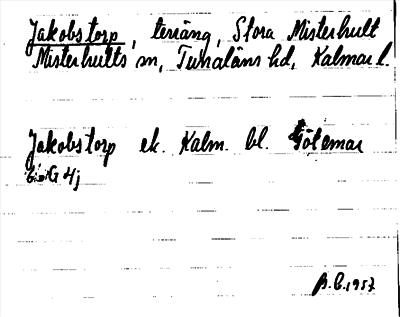 Jakobstorp, terräng, Stora Misterhult
Misterhults sn, Tunaläns hd, Kalmar l.
Jakobstorp ek. Kalm. bl. Götemar
6 G 4j
B.C. 1957